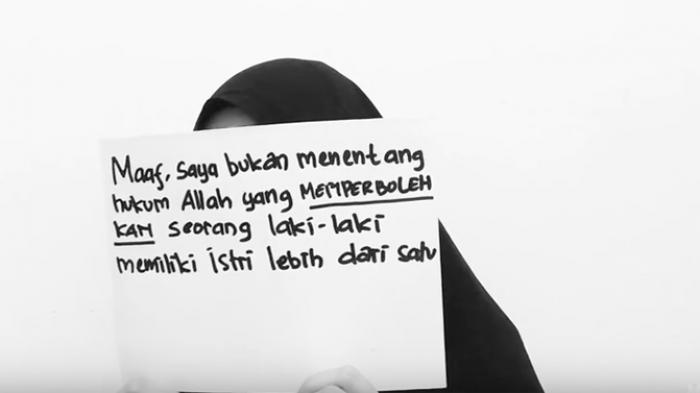 Maaf, saya bukan menentang
hukum Allah yang MEMPERBOLEH
KAN seorang laki-laki
memiliki istri lebih dari satu